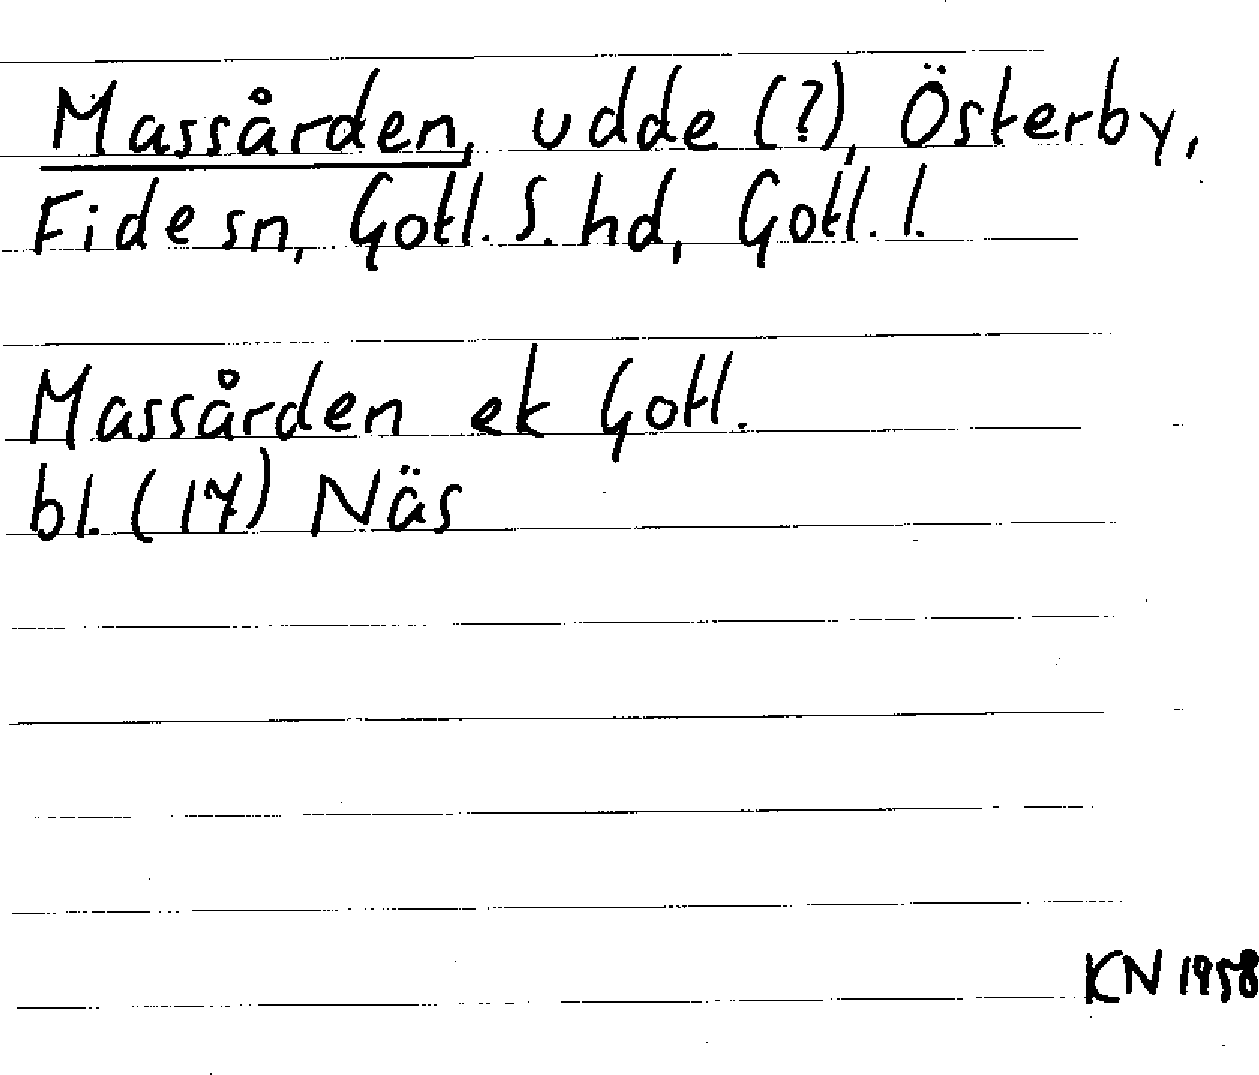 Massården, udde (?), Österby,
Fide sn, Gotl. S. hd, Gotl. l.
Massården ek Gotl.
bl. (17) Näs
KN 1958